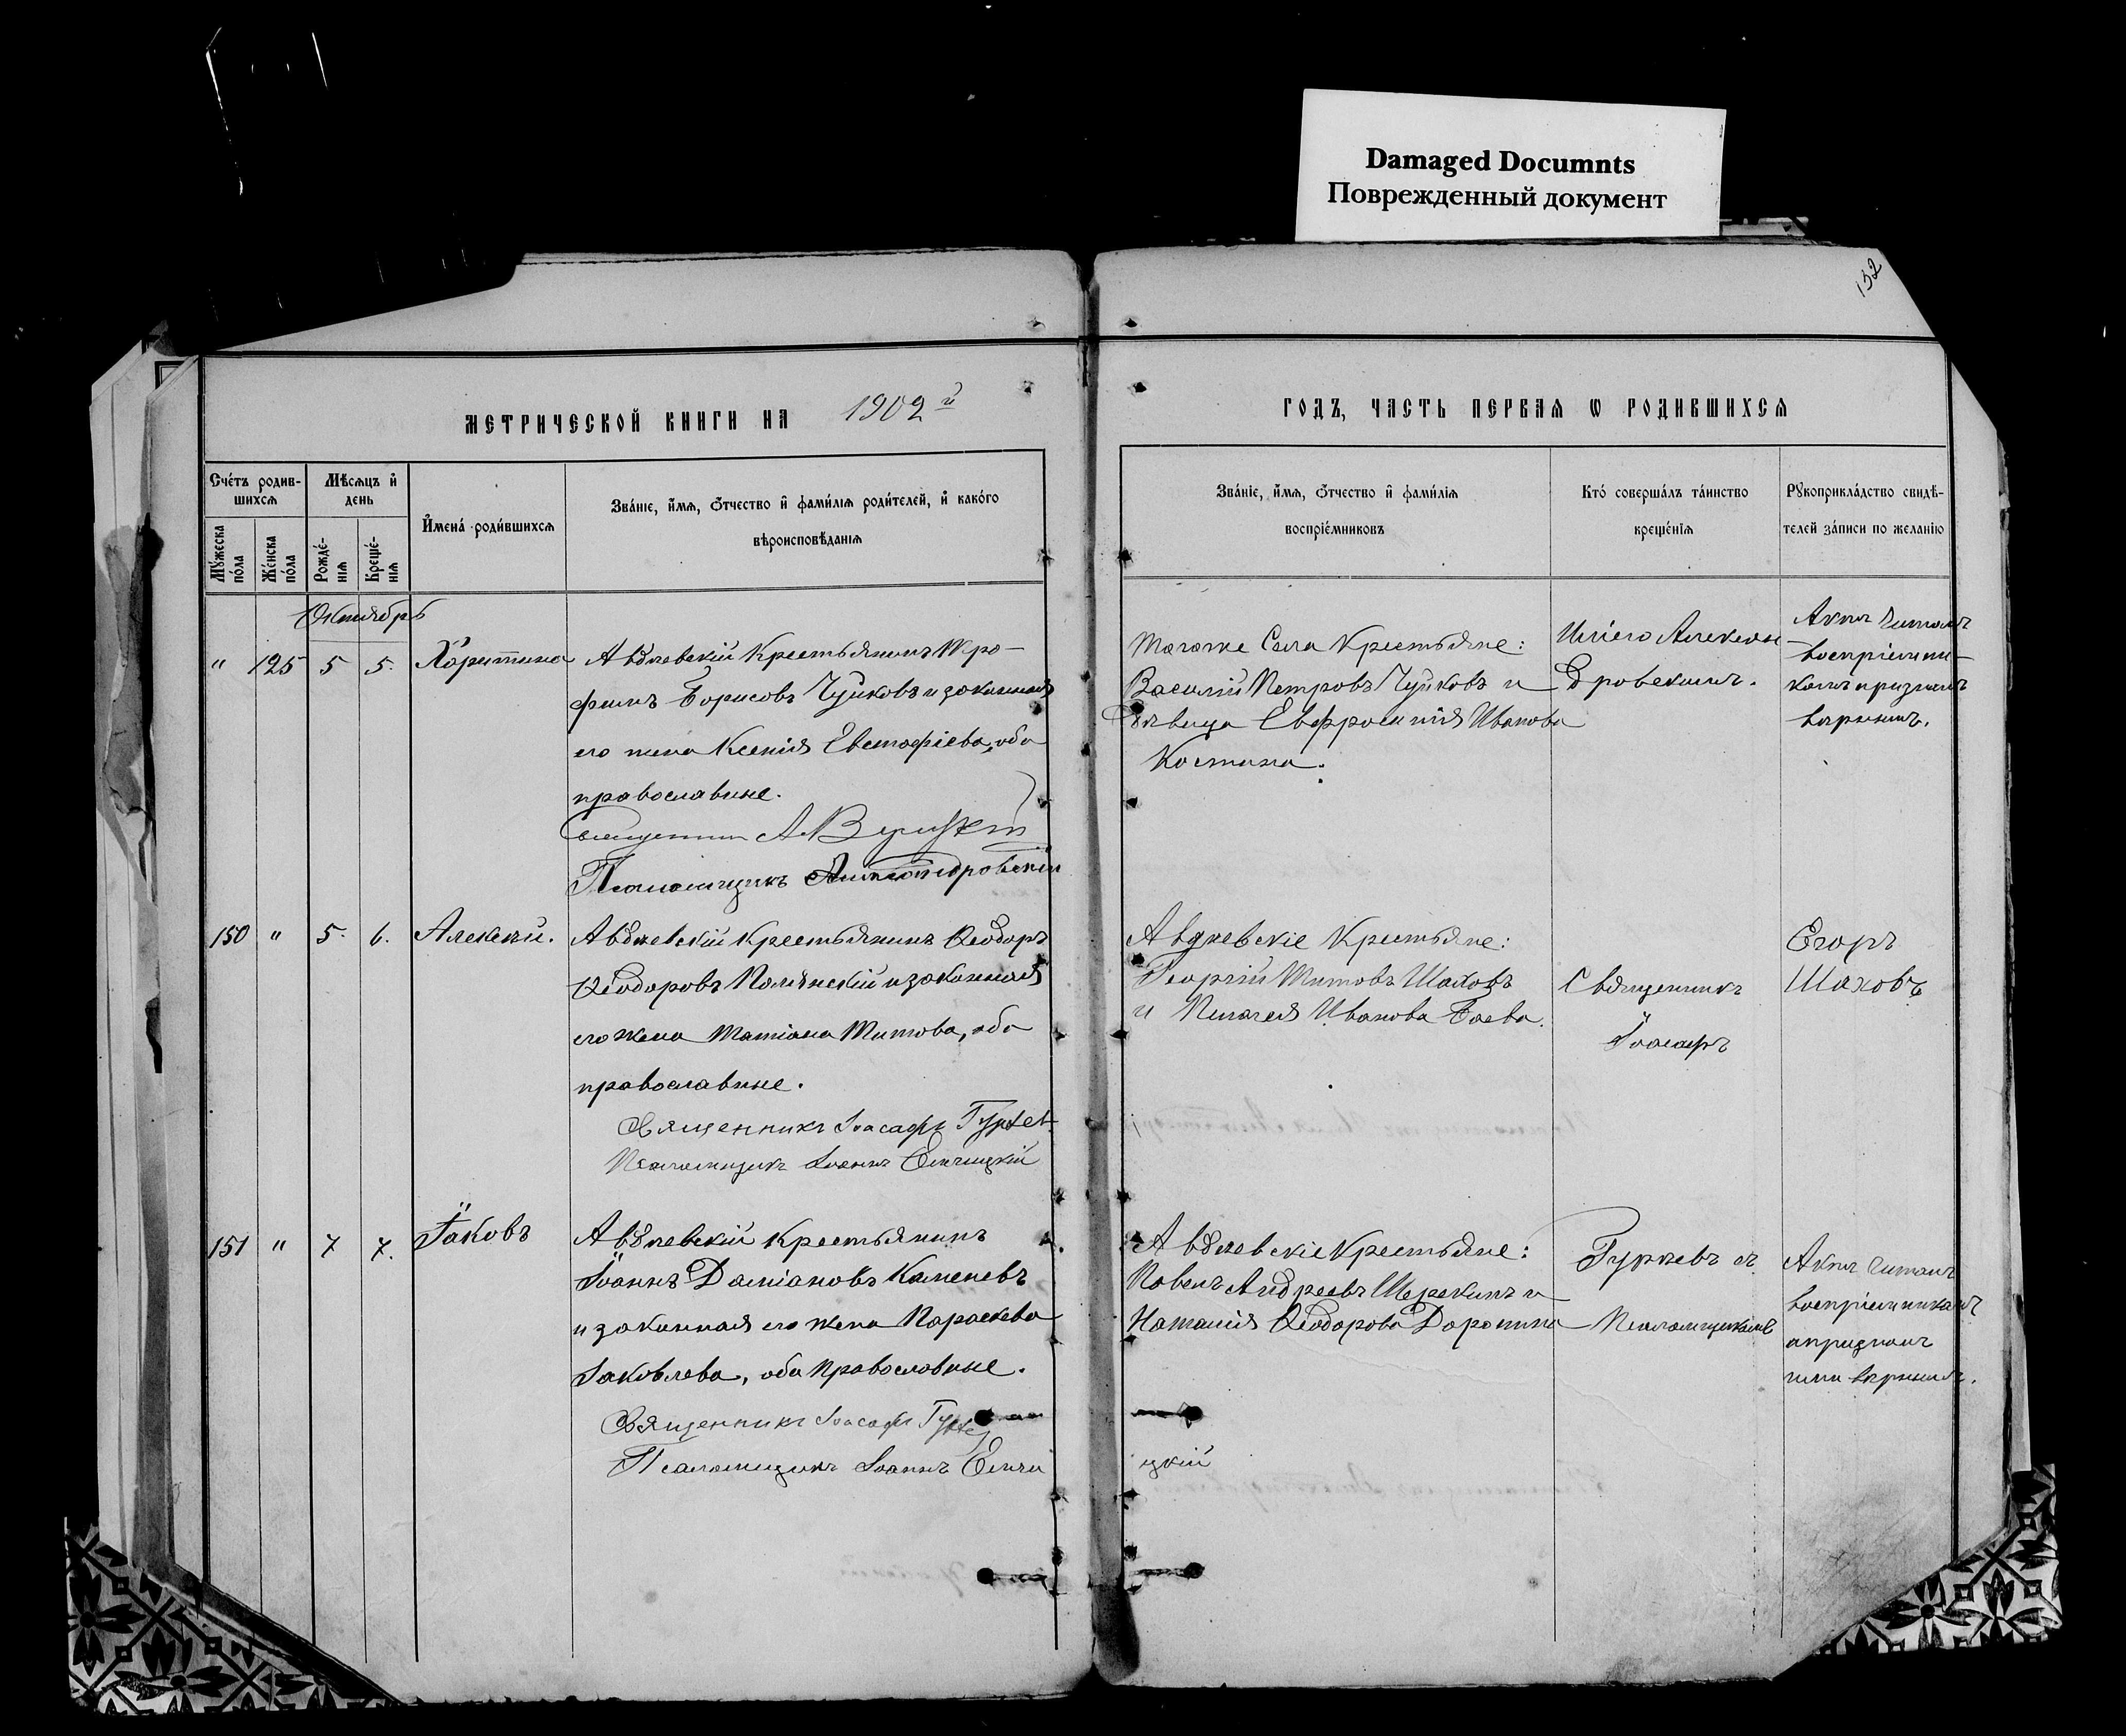 Damaged Documnts
Поврежденный документ
132
МЕТРИЧЕСКОЙ КНИГИ НА 1902й
ГОДЪ, ЧАСТЬ ПЕРВАЯ Ѡ РОДИВШИХСЯ
Счéтъ родив-
шихся
Мѣсяцъ и
день
Мꙋжеска
пóла
Жéнска
пóла
Рождé-
нія
Крещé-
нія
Именá родúвшихся
Звáніе, имя, Ѻтчество и фамúлія родúтелей, и какóго
вѣроисповѣданія
Звáніе, имя, Ѻтчество и фамúлія
воспріéмниковъ
Ктó совершáлъ тáинство
крещéнія
Рꙋкоприклáдство свидѣ-
телей зáписи по желанію
Октябрь
" 125 5 5. Харитина
Авдѣевскій крестьянинъ Тро-
фимъ Борисовъ Чуйковъ и законная
его жена Ксенія Евстафіева, оба
православные.
Священникъ А
Псаломщикъ Александровскій
Тогоже Села Крестьяне:
Василій Петровъ Чуйковъ и
дѣвица Евфросинія Иванова
Костина.
Александ
ровскимъ.
Актъ читалъ
воспріемни-
комъ призналъ
вѣрнымъ.
150 " 5. 6. Алексѣй.
Авдѣевскій крестьянинъ Ѳеодоръ
Ѳеодоровъ Полянскій и законная
его жена Татіана Титова, оба
православные.
Священникъ Іоасафъ Гуржев
Псаломщикъ Іоаннъ Ельчицкій
Авдѣевскіе Крестьяне:
Георгій Титовъ Шаховъ
и Пелагея Иванова Баева.
Священникъ
Іоасафъ
Егоръ
Шаховъ
151 " 7 7. Іаковъ
Авдѣевскій крестьянинъ
Іоаннъ Даміановъ Каменевъ
и законная его жена Параскева
Іаковлева, оба православные.
Священникъ Іоасафъ
Псаломщикъ Іоаннъ Ельчи
цкій
Авдѣевскіе Крестьяне:
Павелъ Андреевъ Шерекинъ и
Наталія Ѳеодорова Доронина
Гуржевъ съ
Псаломщикомъ
Актъ читалъ
воспріемникамъ
и признанъ
ими вѣрнымъ.